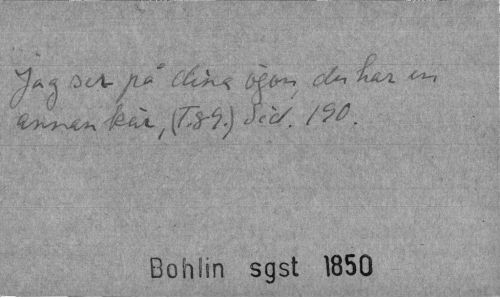 Jag ser på dina ögon, du har en
annan kär, (T.89.) Sid. 190.
Bohlin sgst 1850